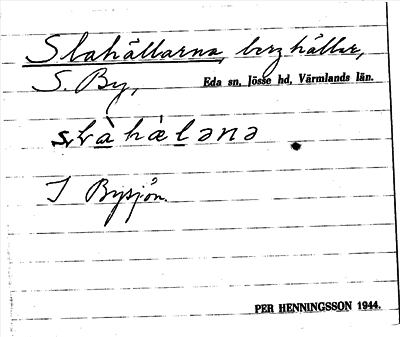 Slahällarna, berghällar,
S. By, Eda sn, Jösse hd, Värmlands län.
I Bysjön.
PER HENNINGSSON 1944.